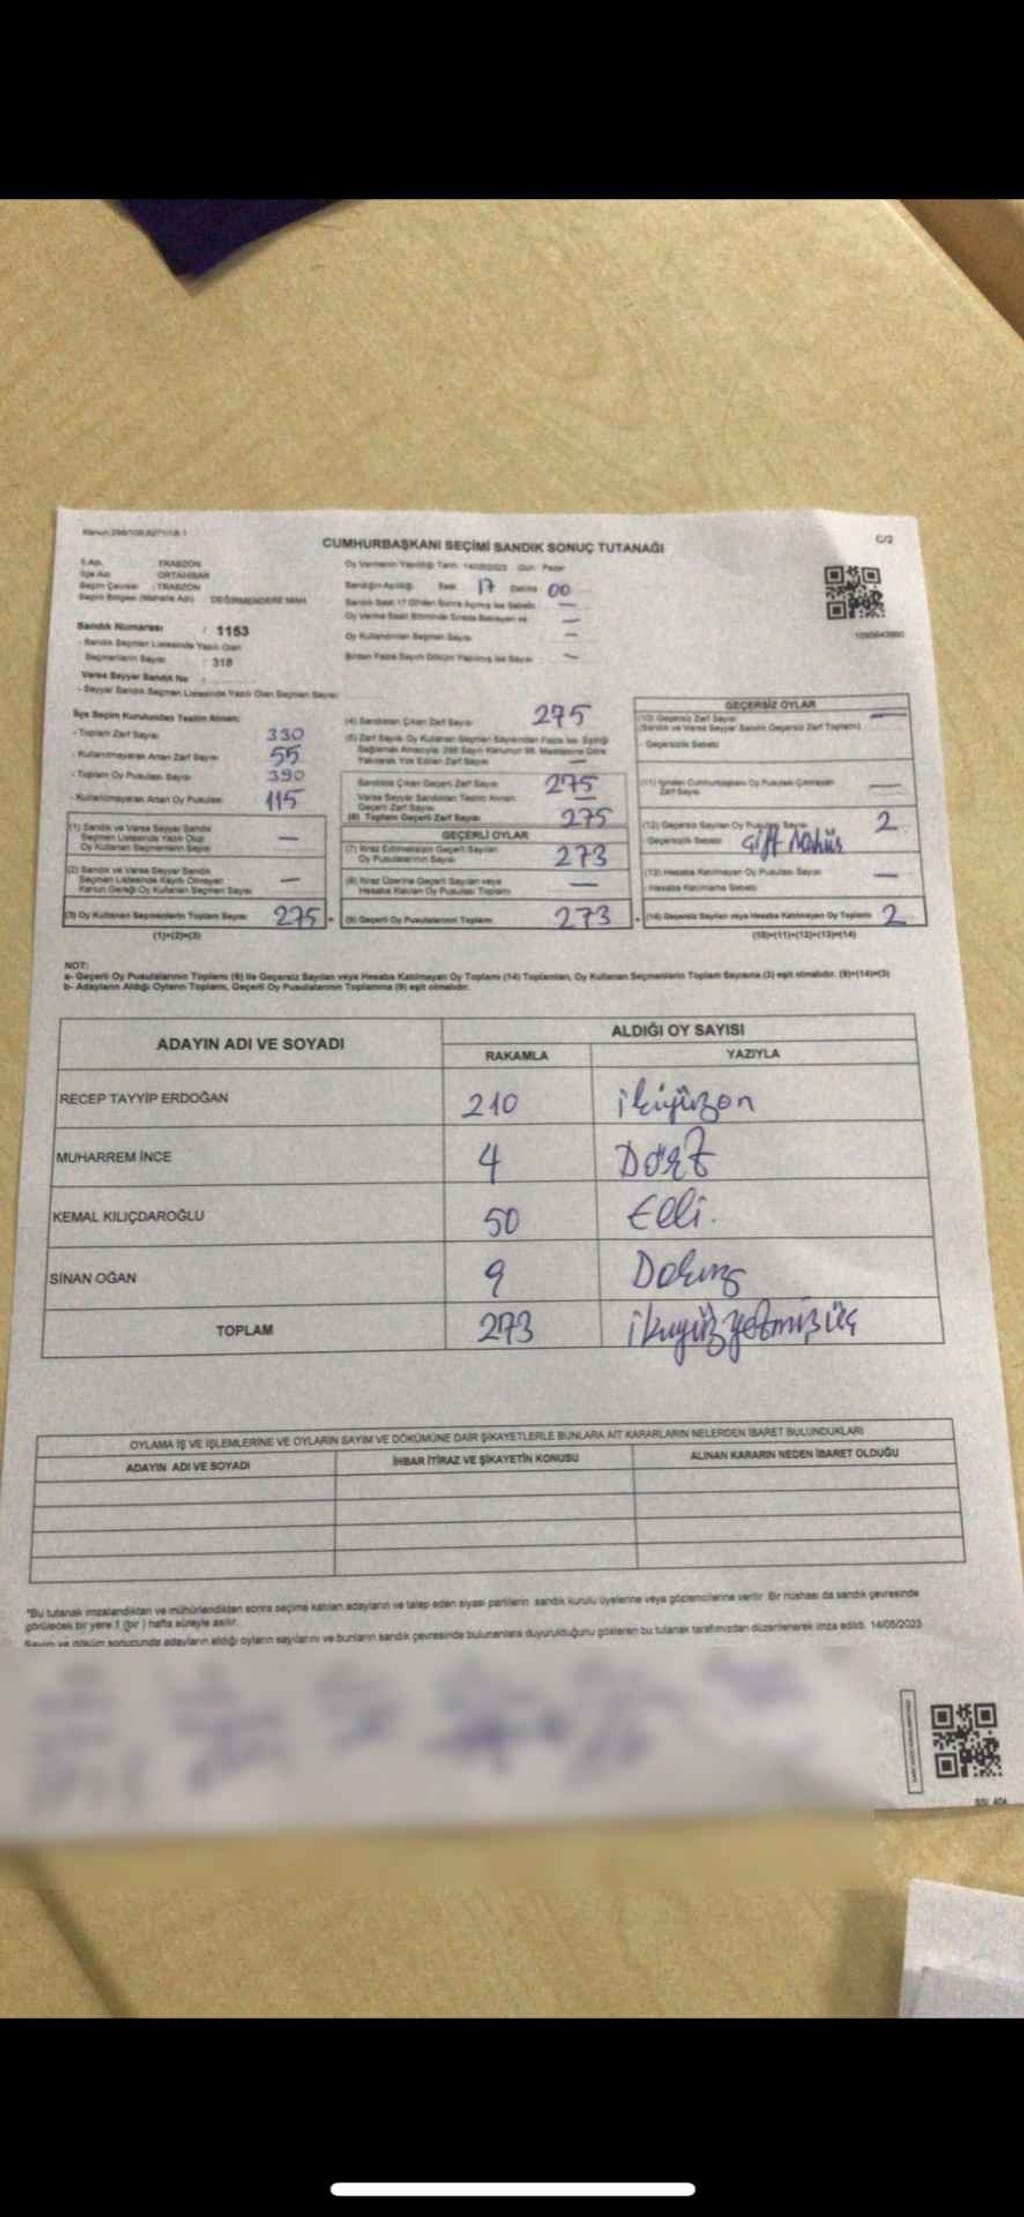 C/2
CUMHURBAŞKANI SEÇİMİ SANDIK SONUÇ TUTANAĞI
İl Adı : TRABZON
İlçe Adı : ORTAHİSAR
Seçim Çevresi : TRABZON
Seçim Bölgesi (Mahalle Adı) : DEĞİRMENDERE MAH
Sandık Numarası : 1153
- Sandık Seçmen Listesinde Yazılı Olan
Seçmenlerin Sayısı : 318
Varsa Seyyar Sandık No :
- Seyyar Sandık Seçmen Listesinde Yazılı Olan Seçmen Sayısı:
Oy Vermenin Yapıldığı Tarih: 14/05/2023 Gün: Pazar
Sandığın Açıldığı Saat 17 Dakika 00
Sandık Saat 17:00'den Sonra Açılmış İse Sebebi: —
Oy Verme Saati Bitiminde Sırada Bekleyen ve —
Oy Kullandırılan Seçmen Sayısı —
Birden Fazla Sayım Döküm Yapılmış İse Sayısı —
İlçe Seçim Kurulundan Teslim Alınan;
- Toplam Zarf Sayısı 330
- Kullanılmayarak Artan Zarf Sayısı 55
- Toplam Oy Pusulası Sayısı 390
- Kullanılmayarak Artan Oy Pusulası 115
(1) Sandık ve Varsa Seyyar Sandık
Seçmen Listesinde Yazılı Olup
Oy Kullanan Seçmenlerin Sayısı —
(2) Sandık ve Varsa Seyyar Sandık
Seçmen Listesinde Kayıtlı Olmayan
Kanun Gereği Oy Kullanan Seçmen Sayısı —
(3) Oy Kullanan Seçmenlerin Toplam Sayısı 275
(1)+(2)=(3)
(4) Sandıktan Çıkan Zarf Sayısı 275
Sandıkta Çıkan Geçerli Zarf Sayısı 275
Varsa Seyyar Sandıktan Teslim Alınan
Geçerli Zarf Sayısı —
(6) Toplam Geçerli Zarf Sayısı 275
GEÇERLİ OYLAR
(7) İtiraz Edilmeksizin Geçerli Sayılan
Oy Pusulalarının Sayısı 273
(8) İtiraz Üzerine Geçerli Sayılan veya
Hesaba Katılan Oy Pusulası Toplamı —
(9) Geçerli Oy Pusulalarının Toplamı 273
GEÇERSİZ OYLAR
(10) Geçersiz Zarf Sayısı —
(Sandık ve Varsa Seyyar Sandık Geçersiz Zarf Toplamı)
- Geçersizlik Sebebi
(11) İçinden Cumhurbaşkanı Oy Pusulası Çıkmayan
Zarf Sayısı —
(12) Geçersiz Sayılan Oy Pusulası Sayısı 2
Geçersizlik Sebebi çift mühür
(13) Hesaba Katılmayan Oy Pusulası Sayısı —
- Hesaba Katılmama Sebebi
(14) Geçersiz Sayılan veya Hesaba Katılmayan Oy Toplamı 2
(10)+(11)+(12)+(13)=(14)
NOT:
a- Geçerli Oy Pusulalarının Toplamı (9) ile Geçersiz Sayılan veya Hesaba Katılmayan Oy Toplamı (14) Toplamları, Oy Kullanan Seçmenlerin Toplam Sayısına (3) eşit olmalıdır. (9)+(14)=(3)
b- Adayların Aldığı Oyların Toplamı, Geçerli Oy Pusulalarının Toplamına (9) eşit olmalıdır.
ADAYIN ADI VE SOYADI
ALDIĞI OY SAYISI
RAKAMLA YAZIYLA
RECEP TAYYİP ERDOĞAN 210 ikiyüzon
MUHARREM İNCE 4 Dört
KEMAL KILIÇDAROĞLU 50 Elli.
SİNAN OĞAN 9 Dokuz
TOPLAM 273 ikiyüzyetmişüç
OYLAMA İŞ VE İŞLEMLERİNE VE OYLARIN SAYIM VE DÖKÜMÜNE DAİR ŞİKAYETLERLE BUNLARA AİT KARARLARIN NELERDEN İBARET BULUNDUKLARI
ADAYIN ADI VE SOYADI İHBAR İTİRAZ VE ŞİKAYETİN KONUSU ALINAN KARARIN NEDEN İBARET OLDUĞU
*Bu tutanak imzalandıktan ve mühürlendikten sonra seçime katılan adayların ve talep eden siyasi partilerin sandık kurulu üyelerine veya gözlemcilerine verilir. Bir nüshası da sandık çevresinde
görülecek bir yere 1 (bir ) hafta süreyle asılır.
Sayım ve döküm sonucunda adayların aldığı oyların sayılarını ve bunların sandık çevresinde bulunanlara duyurulduğunu gösteren bu tutanak tarafımızdan düzenlenerek imza edildi. 14/05/2023